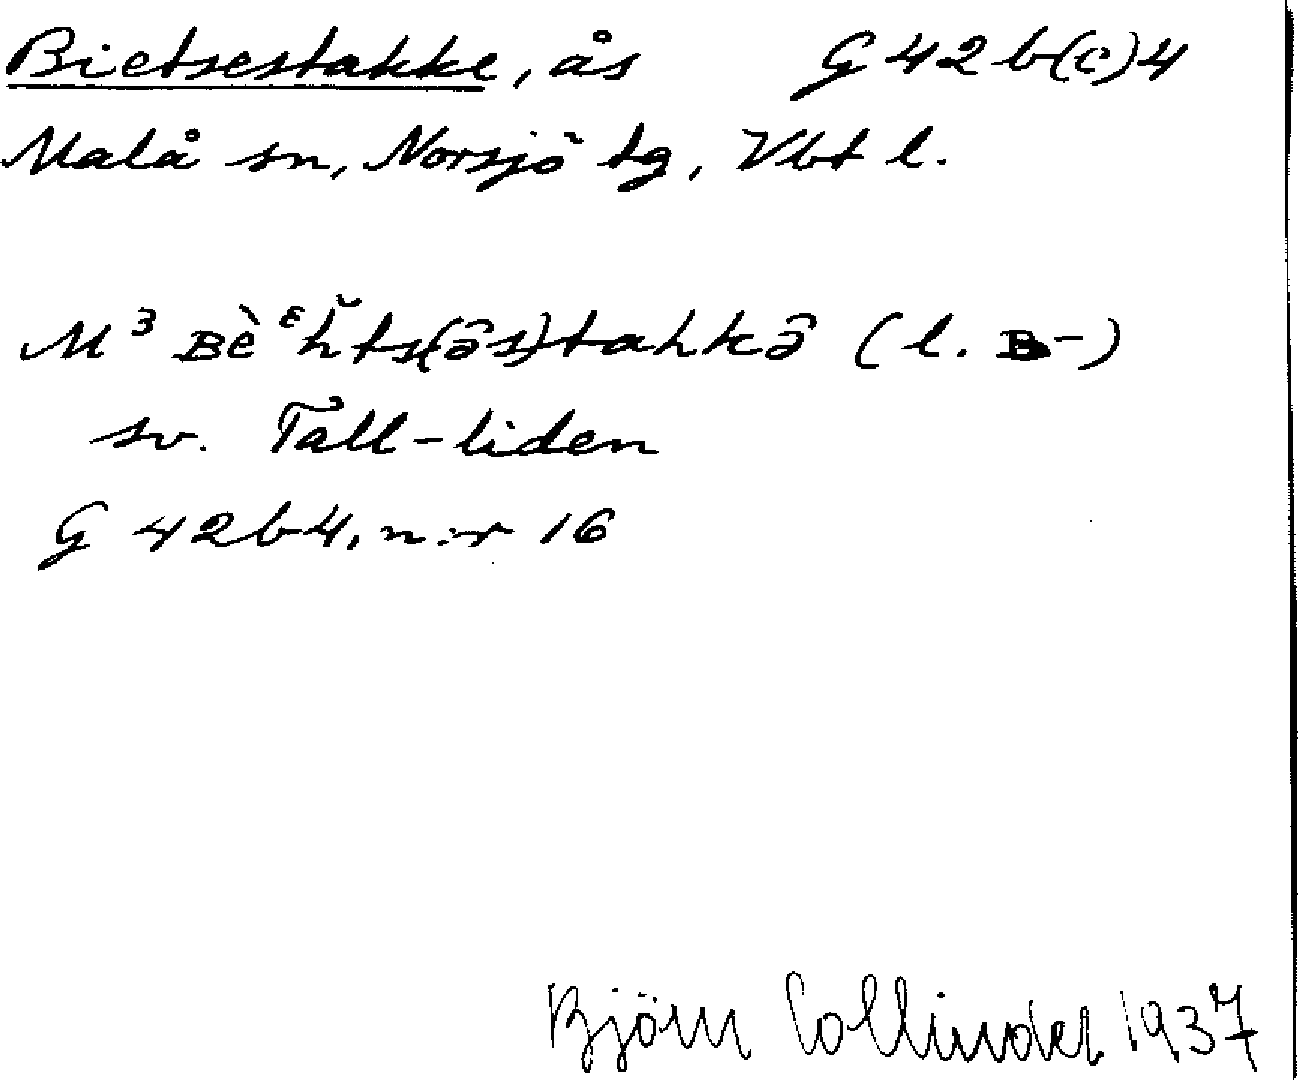 Bietsestakke, ås G 42 b(c)4
Malå sn, Norsjö tg, Vbt l.
M³ ʙè ᵋh̆ts(ə̂s)tahkə̂ (l. ʙ-)
sv. Tall-liden
G 42b4, n:r 16
Björn Collinder 1937